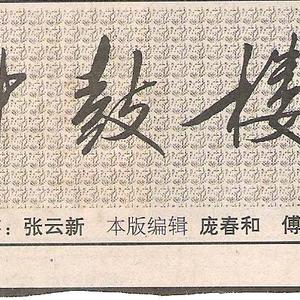 鼓楼
：张云新 本版编辑 庞春和 傅